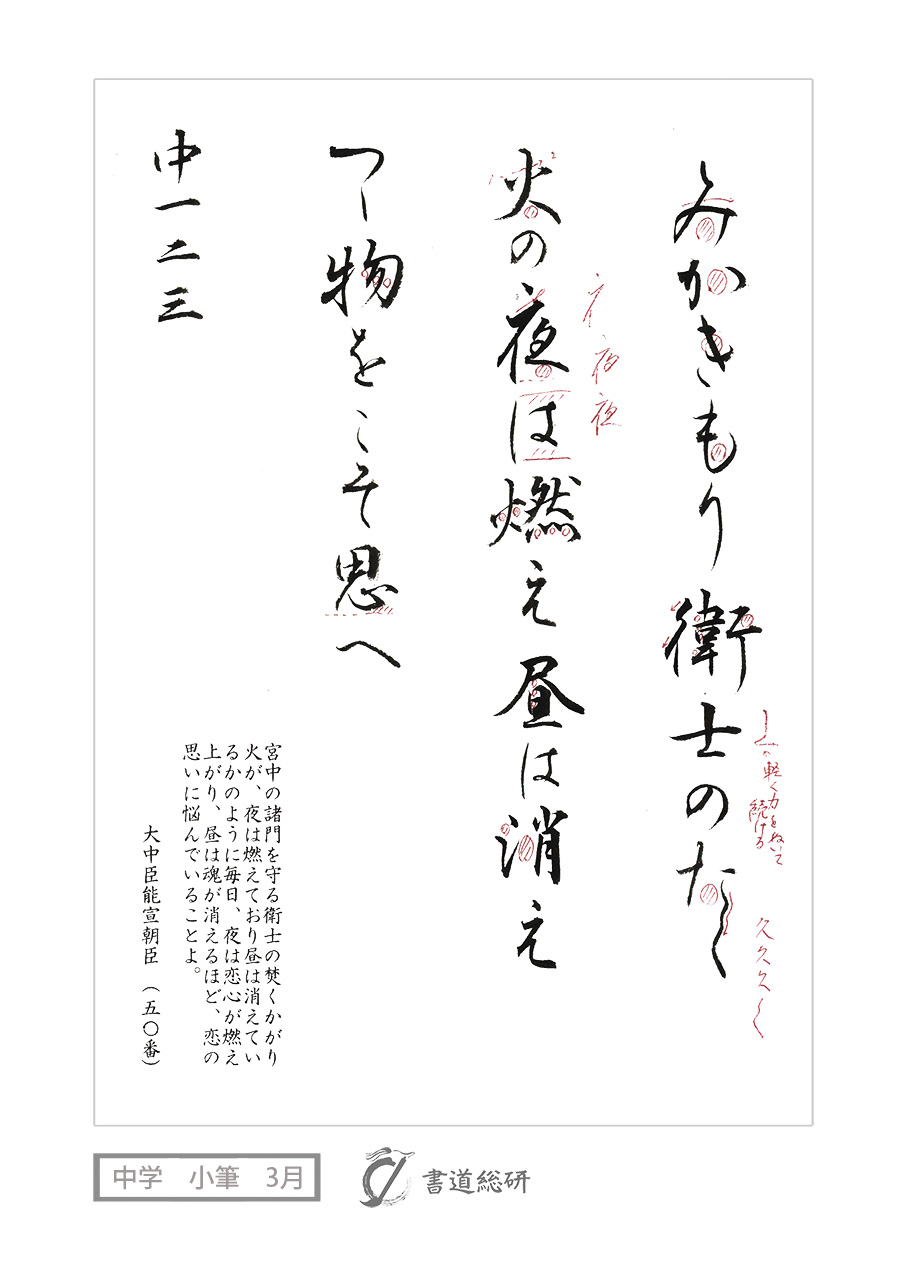 みかきもり衛士のたく
火の夜は燃え昼は消え
つゝ物をこそ思へ
中一二三
亠 夜 夜
軽く力をぬいて
続ける
久久久く
宮中の諸門を守る衛士の焚くかがり
火が、夜は燃えており昼は消えてい
るかのように毎日、夜は恋心が燃え
上がり、昼は魂が消えるほど、恋の
思いに悩んでいることよ。
大中臣能宣朝臣 (五〇番)
中学 小筆 3月
書道総研